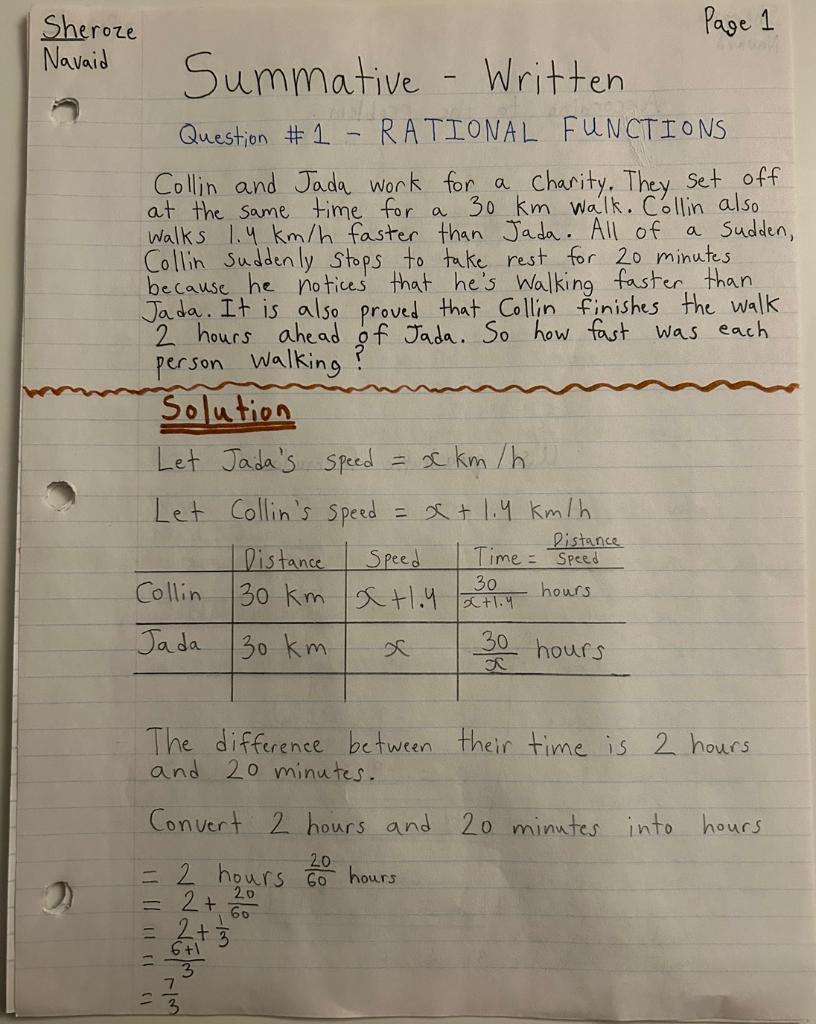 Sheroze
Navaid
Page 1
Summative - Written
Question #1 - RATIONAL FUNCTIONS
Collin and Jada work for a charity. They set off
at the same time for a 30 km walk. Collin also
walks 1.4 km/h faster than Jada. All of a sudden,
Collin suddenly stops to take rest for 20 minutes
because he notices that he's walking faster than
Jada. It is also proved that Collin finishes the walk
2 hours ahead of Jada. So how fast was each
person walking?
Solution
Let Jada's speed = x km/h
Let Collin's speed = x + 1.4 km/h
Distance Speed Time = Distance/Speed
Collin 30 km x+1.4 30/x+1.4 hours
Jada 30 km x 30/x hours
The difference between their time is 2 hours
and 20 minutes.
Convert 2 hours and 20 minutes into hours
= 2 hours 20/60 hours
= 2 + 20/60
= 2 + 1/3
= 6+1/3
= 7/3